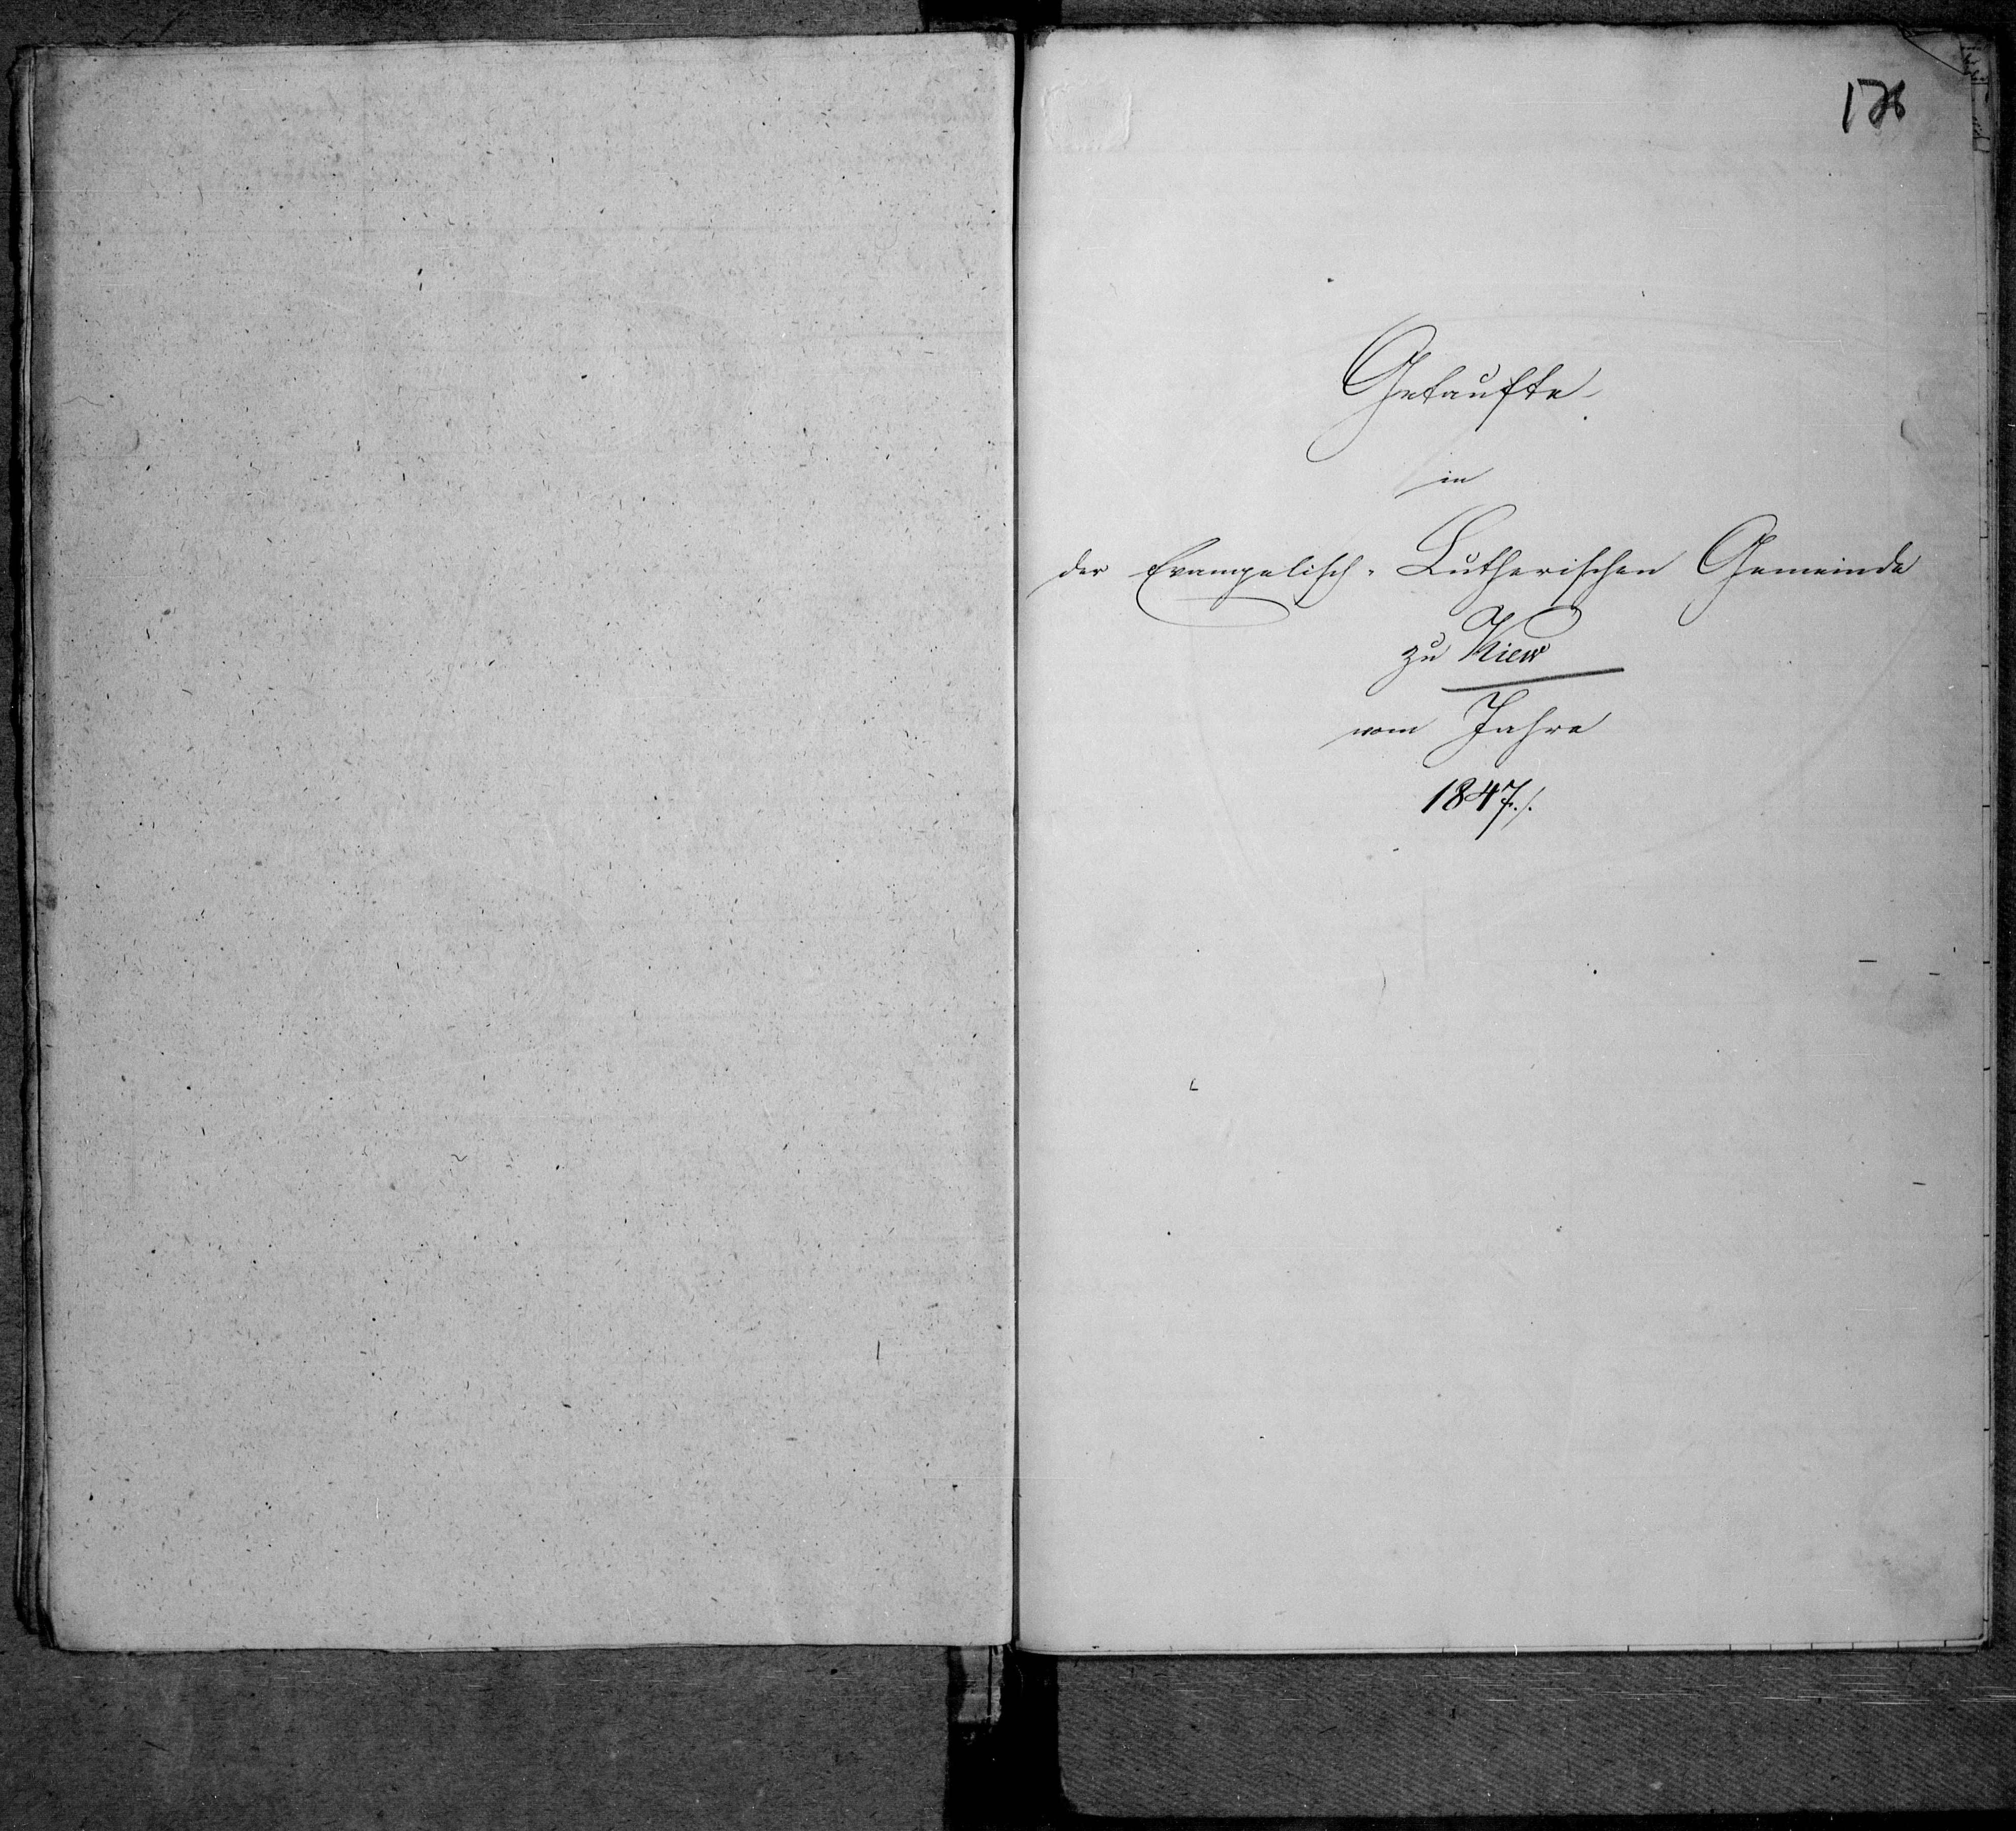 Getaufte
in
der Evangelisch-Lutherischen Gemeinde
zu Kiew
vom Jahre
1847./.